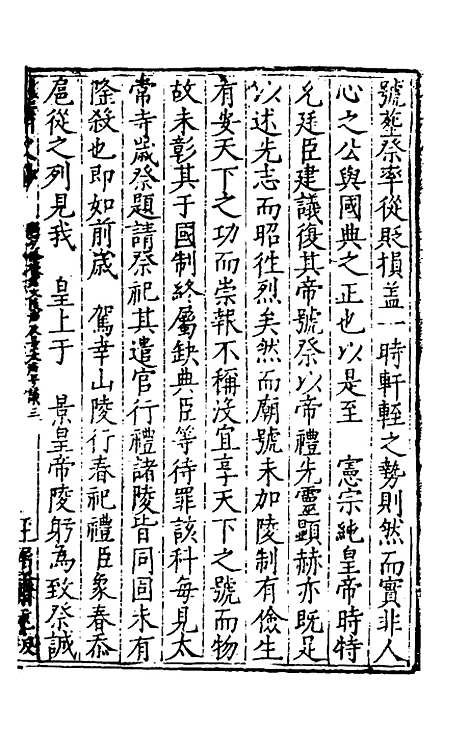 號塟祭率從貶損盖一時軒輊之勢則然而實非人
心之公與國典之正也以是至　憲宗純皇帝時特
允廷臣建議復其帝號祭以帝禮先靈顯赫亦既足
以述先志而昭徃烈矣然而廟號未加陵制有儉生
有安天下之功而崇報不稱沒宜享天下之號而物
故未彰其于國制終屬缺典臣等待罪該科每見太
常寺歲祭題請祭祀其遣官行禮諸陵皆同固未有
隆殺也即如前歲　駕幸山陵行春祀禮臣象春忝
扈從之列見我　皇上于　景皇帝陵躬為致祭誠